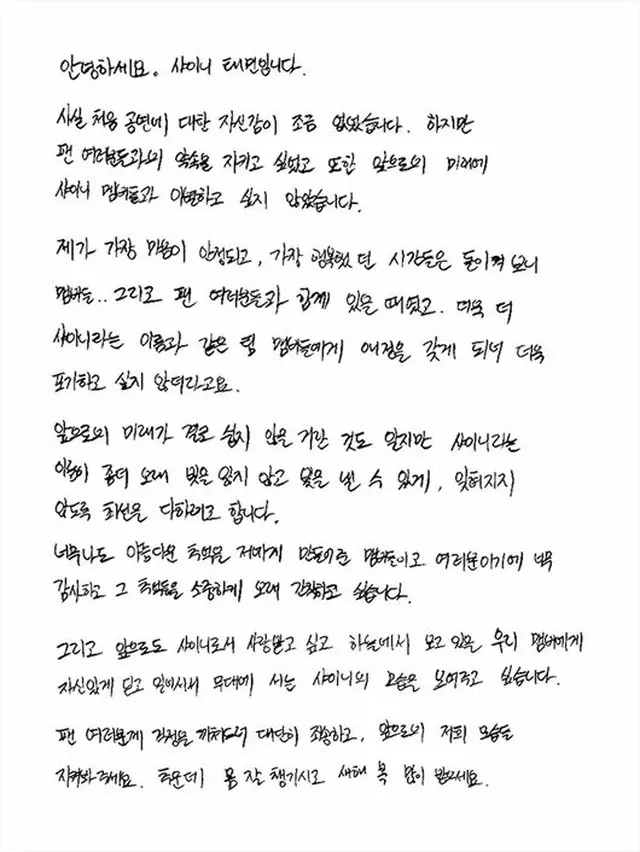 안녕하세요. 샤이니 태민입니다.
사실 처음 공연에 대한 자신감이 조금 없었습니다. 하지만
팬 여러분들과의 약속을 지키고 싶었고 또한 앞으로의 미래에
샤이니 멤버들과 이별하고 싶지 않았습니다.
제가 가장 마음이 안정되고, 가장 행복했던 시간들은 돌이켜 보니
멤버들.. 그리고 팬 여러분들과 함께 있을 때였고. 더욱 더
샤이니라는 이름과 같은 팀 멤버들에게 애정을 갖게 되너 더욱
포기하고 싶지 않더라고요.
앞으로의 미래가 결코 쉽지 않을 거란 것도 알지만 샤이니라는
이름이 좀더 오래 빛을 잃지 않고 빛을 낼 수 있게, 잊혀지지
않도록 최선을 다하려고 합니다.
너무나도 아름다운 추억을 저에게 만들어준 멤버들이고 여러분이기에 너무
감사하고 그 추억들을 소중하게 오래 간직하고 싶습니다.
그리고 앞으로도 샤이니로서 사랑받고 싶고 하늘에서 보고 있을 우리 멤버에게
자신있게 믿고 일어서서 무대에 서는 샤이니의 모습을 보여주고 싶습니다.
팬 여러분께 걱정을 끼쳐드려 대단히 죄송하고, 앞으로의 저희 모습들
지켜봐주세요. 추운데 몸 잘 챙기시고 새해 복 많이 받으세요.